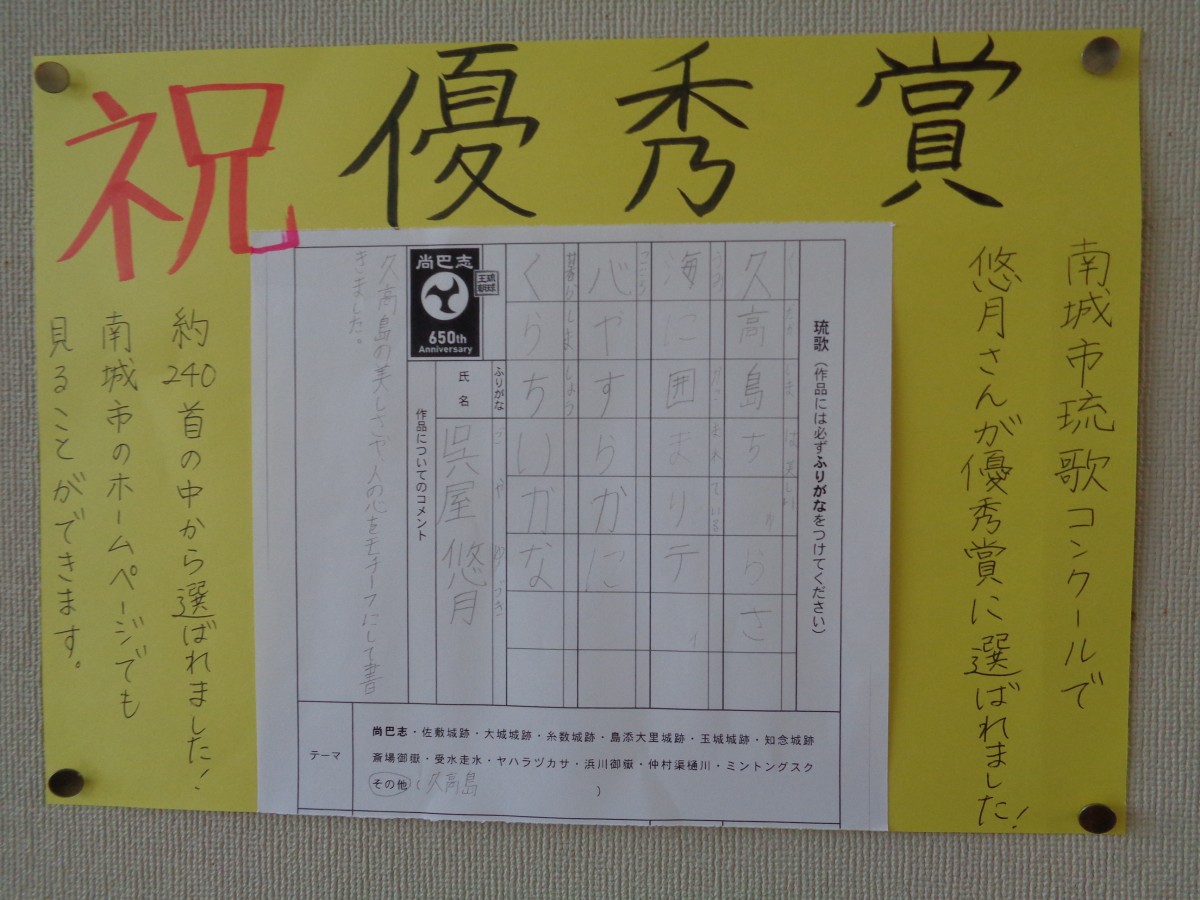 祝 優秀賞
南城市琉歌コンクールで
悠月さんが優秀賞に選ばれました!
琉歌（作品には必ずふりがなをつけてください）
久高島ちゅらさ
海に囲まりティ
心やすらかに
くらちいかな
尚巴志
琉球王朝
650th
Anniversary
ふりがな
ご や ゆづき
氏名
呉屋 悠月
作品についてのコメント
久高島の美しさや、人の心をモチーフにして書
きました。
テーマ
尚巴志・佐敷城跡・大城城跡・糸数城跡・島添大里城跡・玉城城跡・知念城跡
斎場御嶽・受水走水・ヤハラヅカサ・浜川御嶽・仲村渠樋川・ミントングスク
その他（久高島）
約240首の中から選ばれました!
南城市のホームページでも
見ることができます。